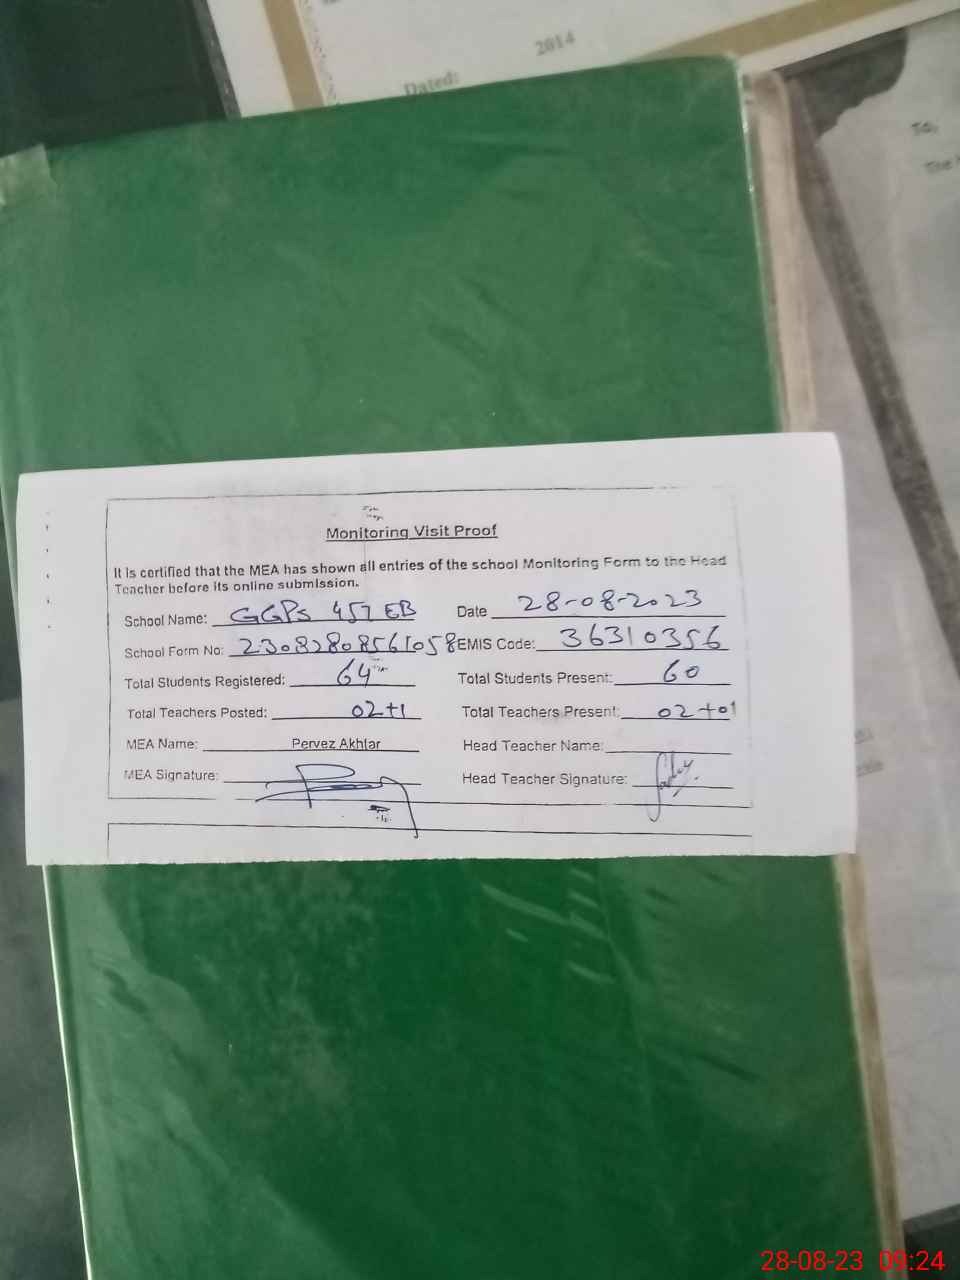 2014
Dated:
To,
The
Monitoring Visit Proof
It is certified that the MEA has shown all entries of the school Monitoring Form to the Head
Teacher before its online submission.
School Name: GGPS 457 EB Date 28-08-2023
School Form No: 23082808561058 EMIS Code: 36310356
Total Students Registered: 64 Total Students Present: 60
Total Teachers Posted: 02+1 Total Teachers Present: 02+01
MEA Name: Pervez Akhtar Head Teacher Name:
MEA Signature: Head Teacher Signature:
28-08-23 09:24